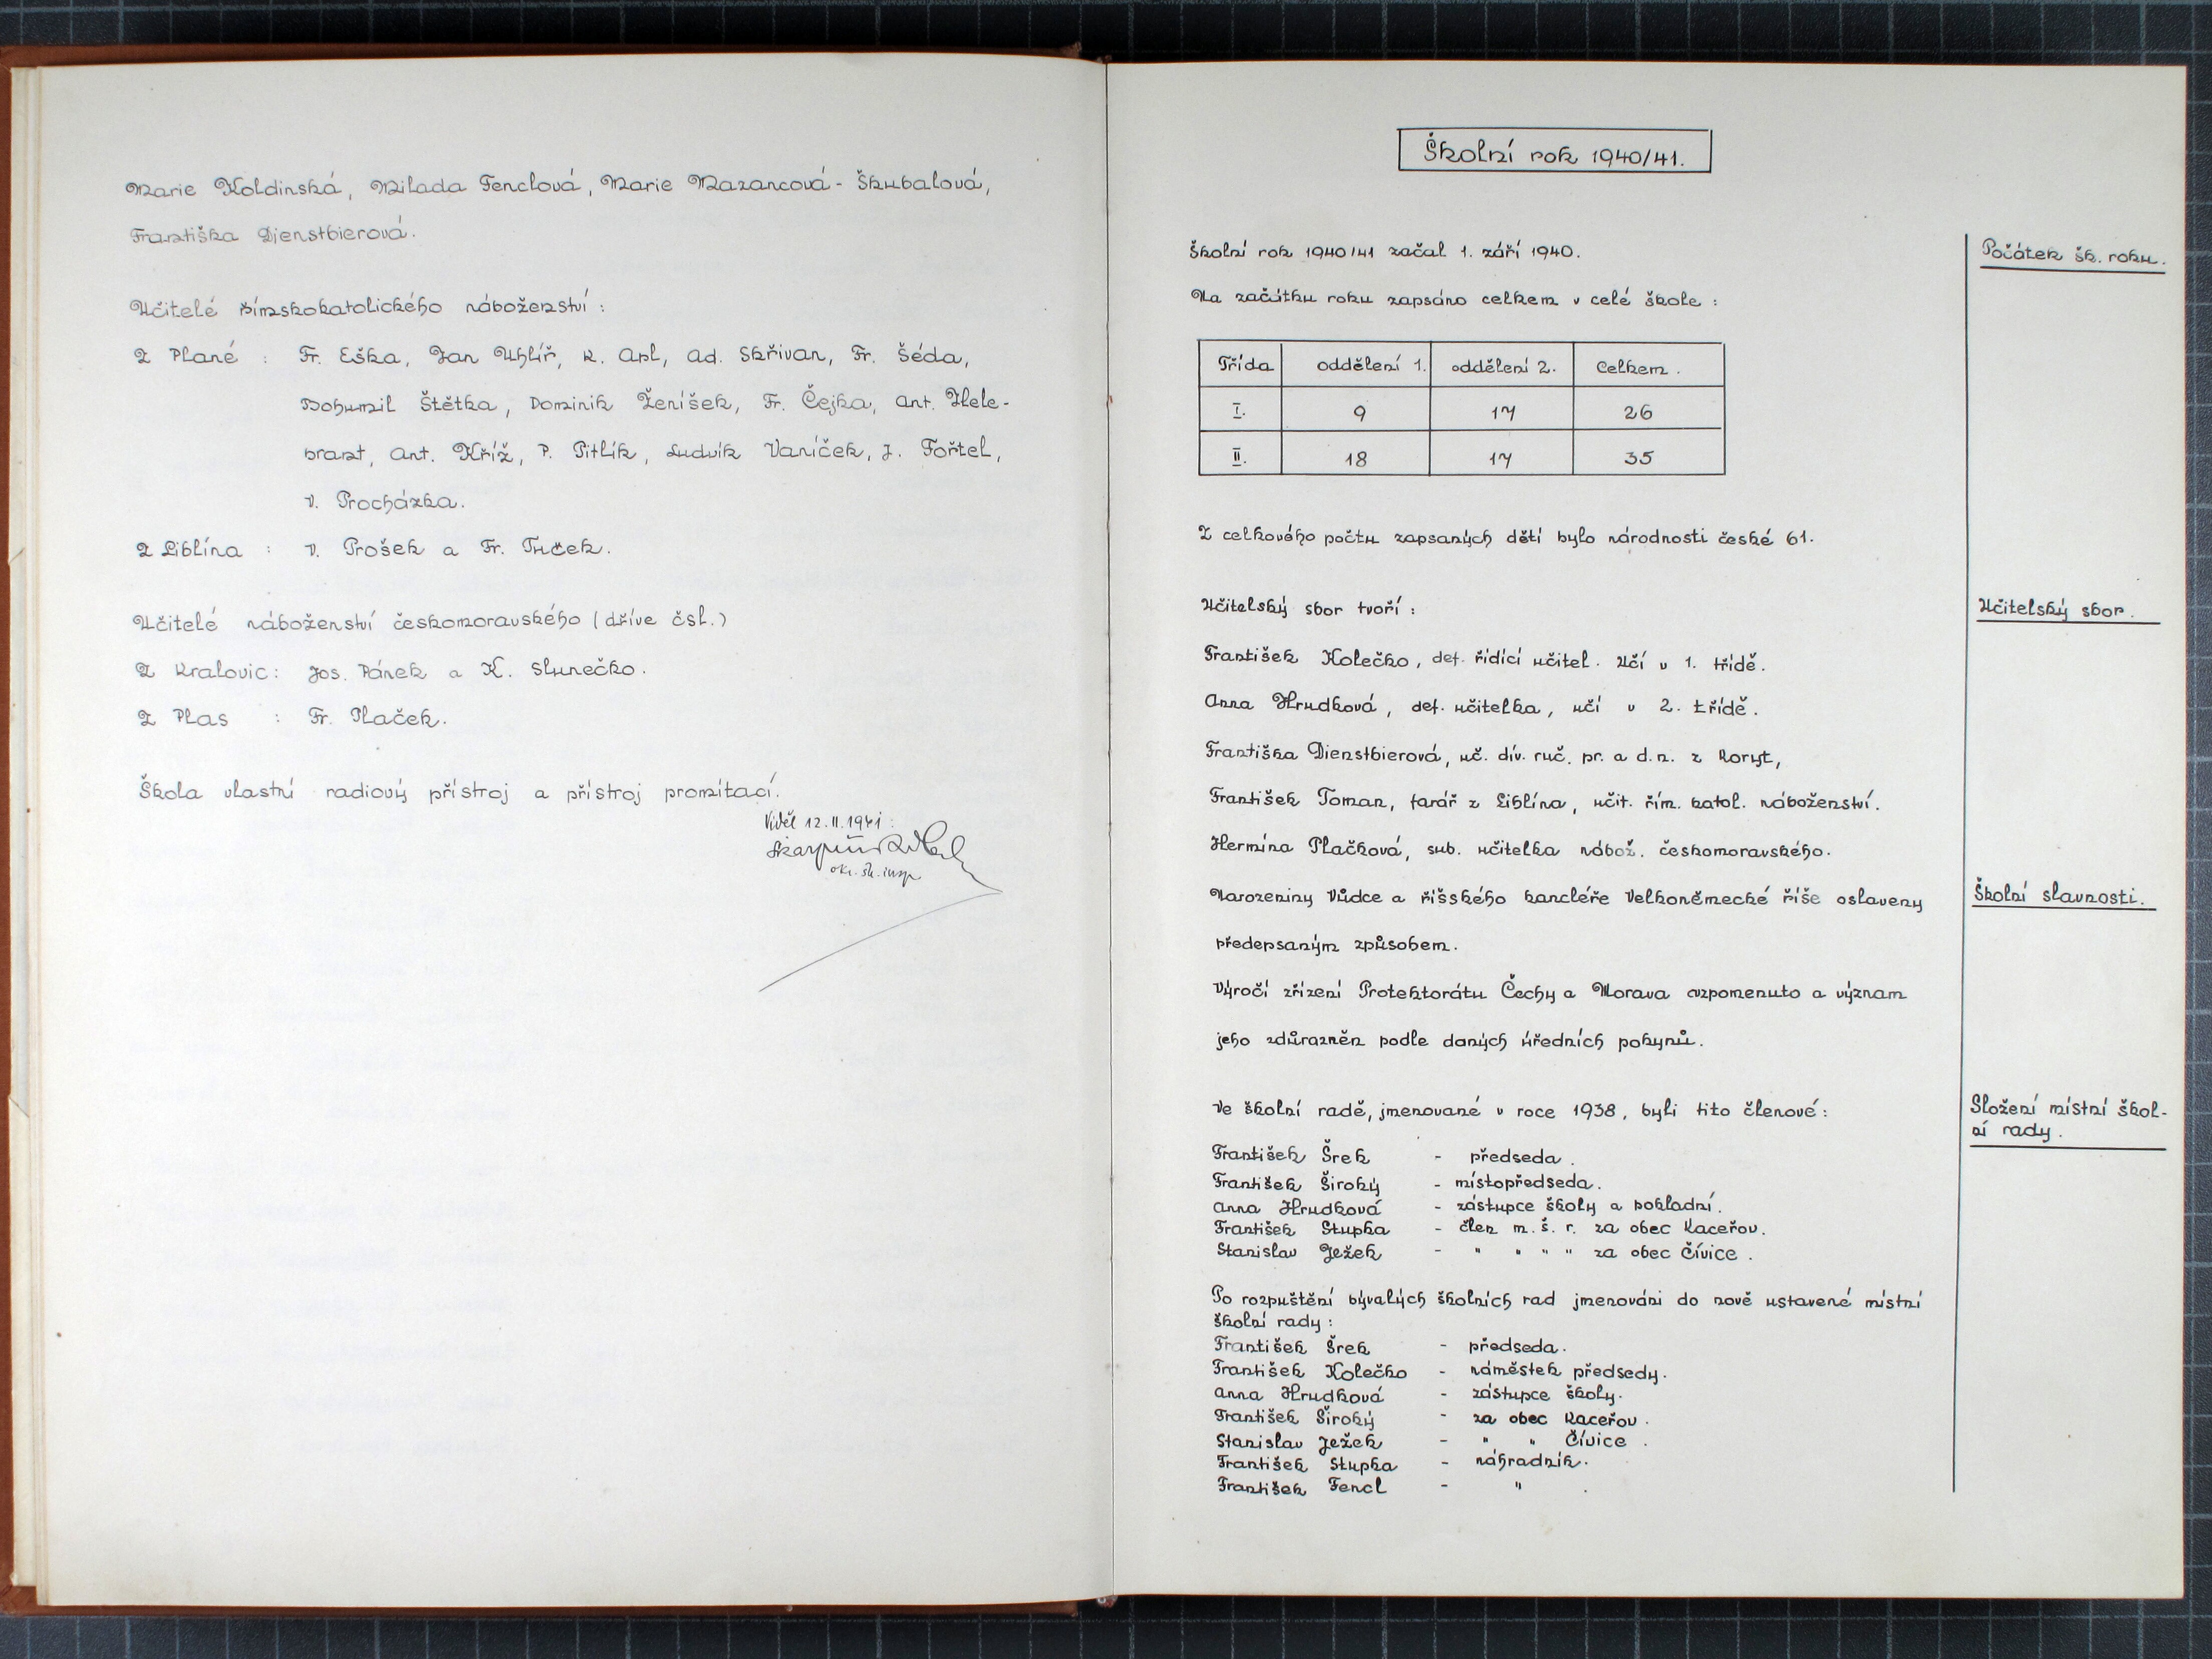 Marie Koldinská, Milada Fenclová, Marie Mazancová - Škubalová,
Františka Dienstbierová.
Učitelé římskokatolického náboženství :
Z Plané : Fr. Eška, Jan Uhlíř, K. Apl, Ad. Skřivan, Fr. Šéda,
Bohumil Štětka, Dominik Ženíšek, Fr. Čejka, Ant. Hele-
brant, Ant. Kříž, P. Pitlík, Ludvík Vaníček, J. Fořtel,
V. Procházka.
Z Liblína : V. Prošek a Fr. Tuček.
Učitelé náboženství českomoravského (dříve čsl.)
Z Kralovic : Jos. Pánek a K. Slunečko.
Z Plas : Fr. Plaček.
Škola vlastní radiový přístroj a přístroj promítací.
Viděl 12.II.1941 :
okr. šk. insp
Školní rok 1940/41.
Školní rok 1940/41 začal 1. září 1940.
Počátek šk. roku.
Na začátku roku zapsáno celkem v celé škole :
Třída oddělení 1. oddělení 2. Celkem .
I. 9 17 26
II. 18 17 35
Z celkového počtu zapsaných dětí bylo národnosti české 61.
Učitelský sbor tvoří :
Učitelský sbor.
František Kolečko, def. řídící učitel. Učí v 1. třídě.
Anna Hrudková, def. učitelka, učí v 2. třídě.
Františka Dienstbierová, uč. dív. ruč. pr. a d.n. z Koryt,
František Toman, farář z Liblína, učit. řím. katol. náboženství.
Hermína Plačková, sub. učitelka nábož. českomoravského.
Narozeniny Vůdce a říšského kancléře Velkoněmecké říše oslaveny
Školní slavnosti.
předepsaným způsobem.
Výročí zřízení Protektorátu Čechy a Morava vzpomenuto a význam
jeho zdůrazněn podle daných úředních pokynů.
Ve školní radě, jmenované v roce 1938, byli tito členové :
Složení místní škol-
ní rady.
František Šrek - předseda.
František Široký - místopředseda.
Anna Hrudková - zástupce školy a pokladní.
František Stupka - člen m. š. r. za obec Kaceřov.
Stanislav Ježek - " " " " za obec Čívice.
Po rozpuštění bývalých školních rad jmenováni do nově ustavené místní
školní rady :
František Šrek - předseda.
František Kolečko - náměstek předsedy.
Anna Hrudková - zástupce školy.
František Široký - za obec Kaceřov.
Stanislav Ježek - " " Čívice.
František Stupka - náhradník.
František Fencl - " .